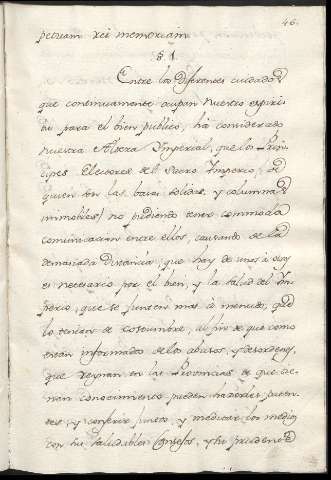 46.
petuam rei memoriam
§. 1.
Entre los diferentes cuidados
que continuamente ocupan nuestro espiri-
tu para el bien publico, ha considerado
nuestra Alteza Imperial, que los Prin-
cipes Electores del Sacro Imperio, de
quien son las bases solidas, y columnas
inmobles, no pudiendo tener commoda
comunicacion entre ellos, causando de la
demasiada distancia, que hay de unos à otros
es necesario por el bien, y la salud del Im-
perio, que se junten mas à menudo, que
lo tenian de costumbre, al fin de que como
estan informados de los abusos, y desordenes,
que reynan en las Provincias de que tie-
nen conocimiento pueden hacerles presen-
tes, y conferir junto, y meditar los medios
con sus saludables Consejos, y su prudencia